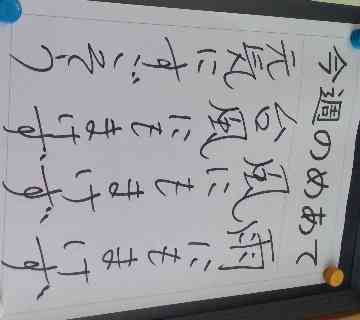 今週のめあて
雨にもまけず、
風にもまけず、
台風にもまけず、
元気にすごそう